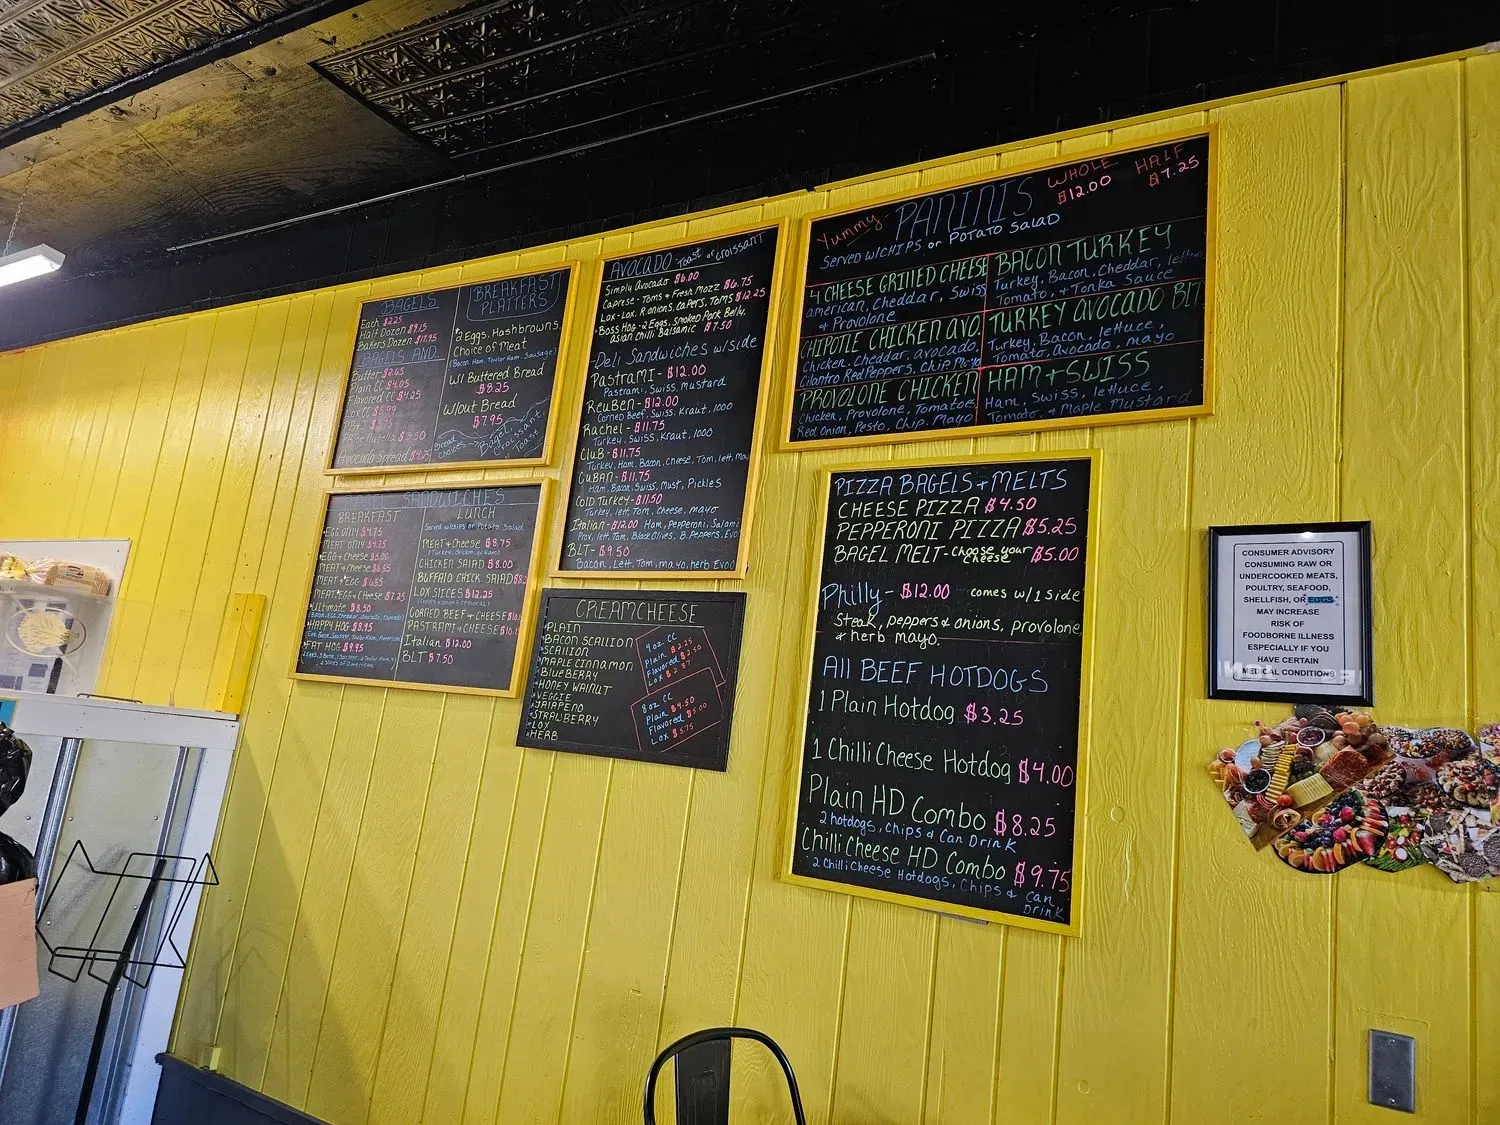 BAGELS
Each $2.25
Half Dozen $9.15
Bakers Dozen $17.95
BAGELS AND...
Butter $2.65
Plain CC $4.05
Flavored CC $4.25
Lox CC $5.99
PB+J $3.75
PB or Nutella $3.50
Avocado Spread $4.25
BREAKFAST
PLATTERS
2 Eggs, Hashbrowns,
Choice of Meat
(Bacon, Ham, Taylor Ham, Sausage)
W/ Buttered Bread
$8.25
W/out Bread
$7.95
Bread
choices
Bagel,
Croissant
Toast
SANDWICHES
BREAKFAST
EGG ONLY $4.75
MEAT ONLY $4.75
EGG + Cheese $5.00
MEAT + Cheese $6.55
MEAT + EGG $6.55
MEAT, EGG + CHeese $7.25
Ultimate $8.50
(Bacon, Egg, Cheese, Avocado, Tomato)
HAPPY HOG $8.95
FAT HOG $9.95
LUNCH
Served w/chips or Potato Salad
MEAT + Cheese $8.75
(Turkey, Chicken, or Ham)
CHICKEN SALAD $8.00
BUFFALO CHICK SALAD
LOX SLICES $12.25
CORNED BEEF + CHEESE
PASTRAMI + CHEESE
Italian $12.00
BLT $7.50
AVOCADO - Toast or Croissant
Simply Avocado $6.00
Caprese - Toms + Fresh Mozz $6.75
Lox - Lox, R onions, capers, Toms $12.25
Boss Hog - 2 Eggs, Smoked Pork Belly,
Asian Chilli Balsamic $7.50
-Deli Sandwiches w/side
PASTRAMI - $12.00
Pastrami, Swiss, Mustard
ReuBen - $12.00
Corned Beef, Swiss, Kraut, 1000
Rachel - $11.75
Turkey, Swiss, Kraut, 1000
CluB - $11.75
Turkey, Ham, Bacon, Cheese, Tom, lett, Mayo
CUBAN - $11.75
Ham, Bacon, Swiss, Must, Pickles
Cold Turkey - $11.50
Turkey, lett, Tom, cheese, mayo
Italian - $12.00 Ham, Pepperoni, Salami
Prov, lett, Tom, Black Olives, B. Peppers, Evoo
BLT - $9.50
Bacon, Lett, Tom, mayo, herb Evoo
CREAMCHEESE
PLAIN
BACON SCALLION
SCALLION
MAPLE CINNAMON
BlueBERRY
HONEY WALNUT
VEGGIE
JALAPENO
STRAWBERRY
LOX
HERB
4oz CC
Plain $2.25
Flavored $2.50
Lox $2.87
8oz CC
Plain $4.50
Flavored $5.00
Lox $5.75
Yummy- PANINIS WHOLE HALF
$12.00 $7.25
SERVED W/CHIPS or POTATO SALAD
4 CHEESE GRILLED CHEESE
american, Cheddar, Swiss
+ Provolone
CHIPOTLE CHICKEN AVO.
Chicken, Cheddar, avocado,
Cilantro Red Peppers, Chip Mayo
PROVOLONE CHICKEN
Chicken, Provolone, Tomatoe,
Red Onion, Pesto, Chip. Mayo
BACON TURKEY
Turkey, Bacon, Cheddar, lettuce
Tomato, + Tonka Sauce
TURKEY AVOCADO BLT
Turkey, Bacon, lettuce,
Tomato, Avocado, mayo
HAM + SWISS
Ham, Swiss, lettuce,
Tomato, + Maple Mustard
PIZZA BAGELS + MELTS
CHEESE PIZZA $4.50
PEPPERONI PIZZA $5.25
BAGEL MELT - choose your cheese $5.00
Philly - $12.00 comes w/1 side
Steak, peppers + onions, provolone,
+ herb mayo.
All BEEF HOTDOGS
1 Plain Hotdog $3.25
1 Chilli Cheese Hotdog $4.00
Plain HD Combo $8.25
2 hotdogs, chips + Can Drink
Chilli Cheese HD Combo $9.75
2 Chilli Cheese Hotdogs, Chips + can
Drink
CONSUMER ADVISORY
CONSUMING RAW OR
UNDERCOOKED MEATS,
POULTRY, SEAFOOD,
SHELLFISH, OR EGGS
MAY INCREASE
RISK OF
FOODBORNE ILLNESS
ESPECIALLY IF YOU
HAVE CERTAIN
MEDICAL CONDITIONS